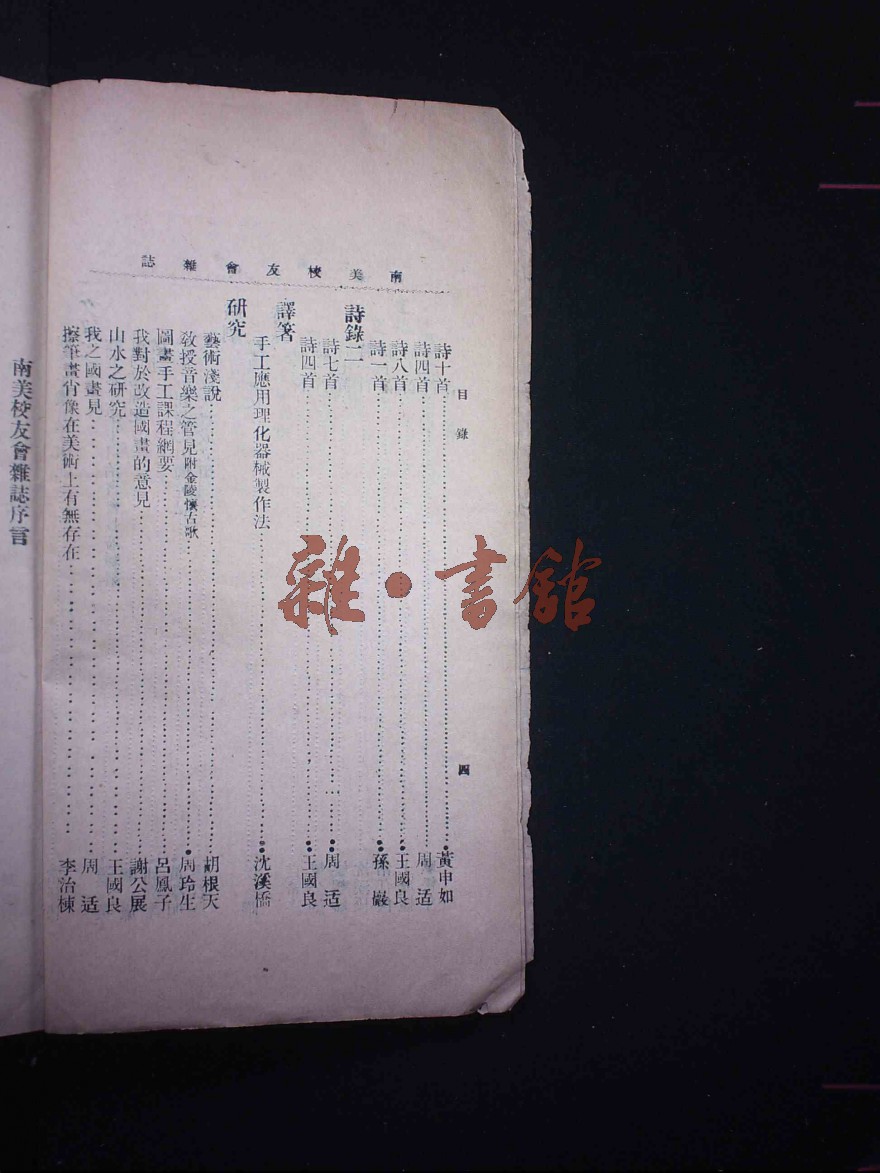 南美校友會雜誌
目錄
四
詩十首⋯⋯黃申如
詩四首⋯⋯周适
詩八首⋯⋯王國良
詩一首⋯⋯孫巖
詩錄二
詩七首⋯⋯周适
詩四首⋯⋯王國良
譯箸
手工應用理化器械製作法⋯⋯沈溪橋
研究
藝術淺說⋯⋯胡根天
敎授音樂之管見附金陵懷古歌⋯⋯周玲生
圖畫手工課程綱要⋯⋯呂鳳子
我對於改造國畫的意見⋯⋯謝公展
山水之研究⋯⋯王國良
我之國畫見⋯⋯周适
擦筆畫肖像在美術上有無存在⋯⋯李治棟
南美校友會雜誌序言
雜·書館